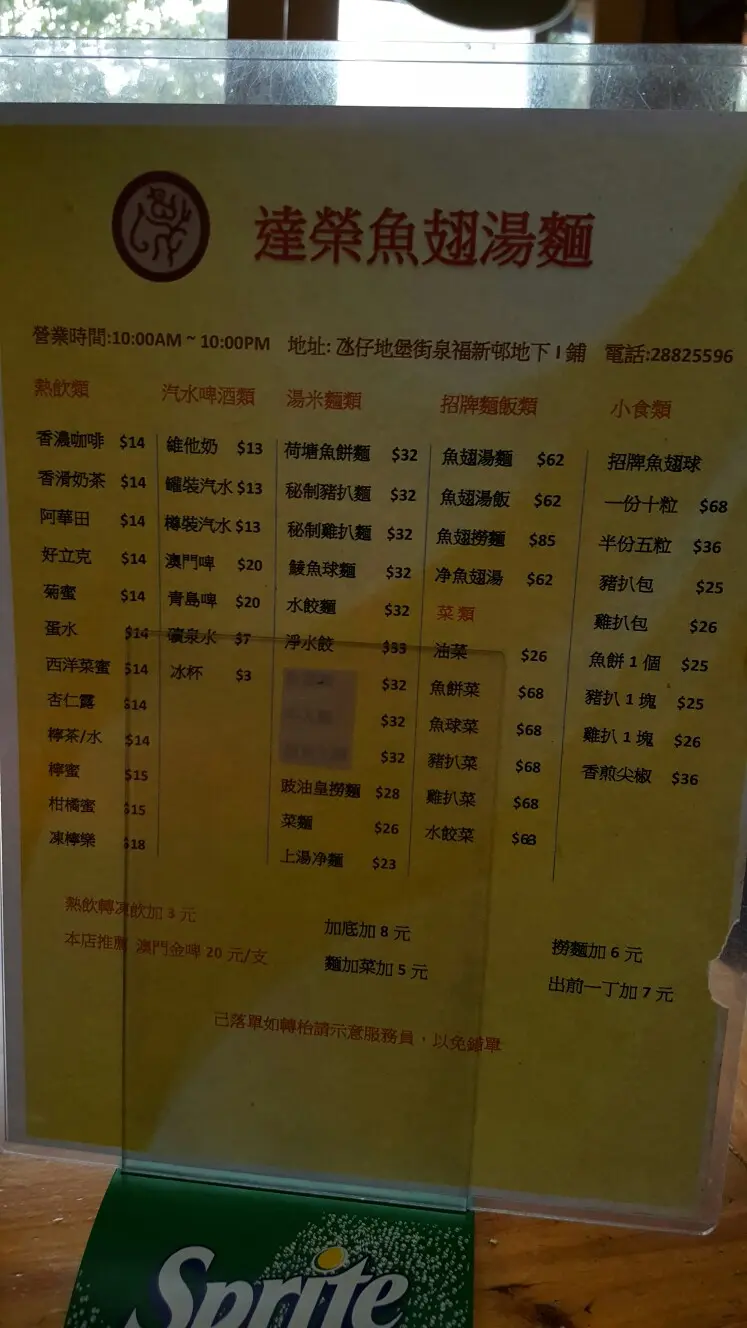 達榮魚翅湯麵
營業時間:10:00AM ~ 10:00PM 地址: 氹仔地堡街泉福新邨地下 I 鋪 電話:28825596
熱飲類
香濃咖啡 $14
香滑奶茶 $14
阿華田 $14
好立克 $14
菊蜜 $14
蛋水 $14
西洋菜蜜 $14
杏仁露 $14
檸茶/水 $14
檸蜜 $15
柑橘蜜 $15
凍檸樂 $18
汽水啤酒類
維他奶 $13
罐裝汽水 $13
樽裝汽水 $13
澳門啤 $20
青島啤 $20
礦泉水 $7
冰杯 $3
湯米麵類
荷塘魚餅麵 $32
秘制豬扒麵 $32
秘制雞扒麵 $32
鯪魚球麵 $32
水餃麵 $32
淨水餃 $33
$32
$32
$32
豉油皇撈麵 $28
菜麵 $26
上湯净麵 $23
招牌麵飯類
魚翅湯麵 $62
魚翅湯飯 $62
魚翅撈麵 $85
净魚翅湯 $62
菜類
油菜 $26
魚餅菜 $68
魚球菜 $68
豬扒菜 $68
雞扒菜 $68
水餃菜 $68
小食類
招牌魚翅球
一份十粒 $68
半份五粒 $36
豬扒包 $25
雞扒包 $26
魚餅 1 個 $25
豬扒 1 塊 $25
雞扒 1 塊 $26
香煎尖椒 $36
熱飲轉凍飲加 3 元
本店推薦 澳門金啤 20 元/支
加底加 8 元
麵加菜加 5 元
撈麵加 6 元
出前一丁加 7 元
己落單如轉枱請示意服務員，以免錯單
Sprite